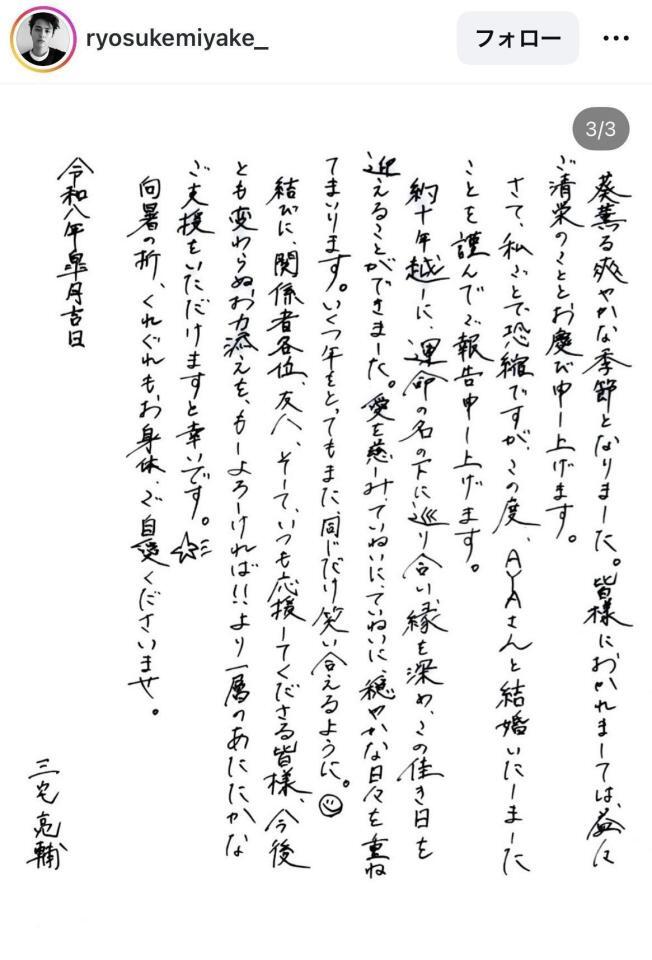 ryosukemiyake_
フォロー
3/3
葵薫る爽やかな季節となりました。皆様におかれましては、益々
ご清栄のこととお慶び申し上げます。
さて、私ごとで恐縮ですが、この度、AYAさんと結婚いたしました
ことを謹んでご報告申し上げます。
約十年越しに、運命の名の下に巡り合い、縁を深め、この佳き日を
迎えることができました。愛を慈しみ、ていねいに、ていねいに、穏やかな日々を重ね
てまいります。いくつ年をとってもまた、同じだけ笑い合えるように。
結びに、関係者各位、友人、そして、いつも応援してくださる皆様、今後
とも変わらぬお力添えを、もしよろしければ!!より一層のあたたかな
ご支援をいただけますと幸いです。
向暑の折、くれぐれもお身体、ご自愛くださいませ。
令和八年皐月吉日
三宅亮輔